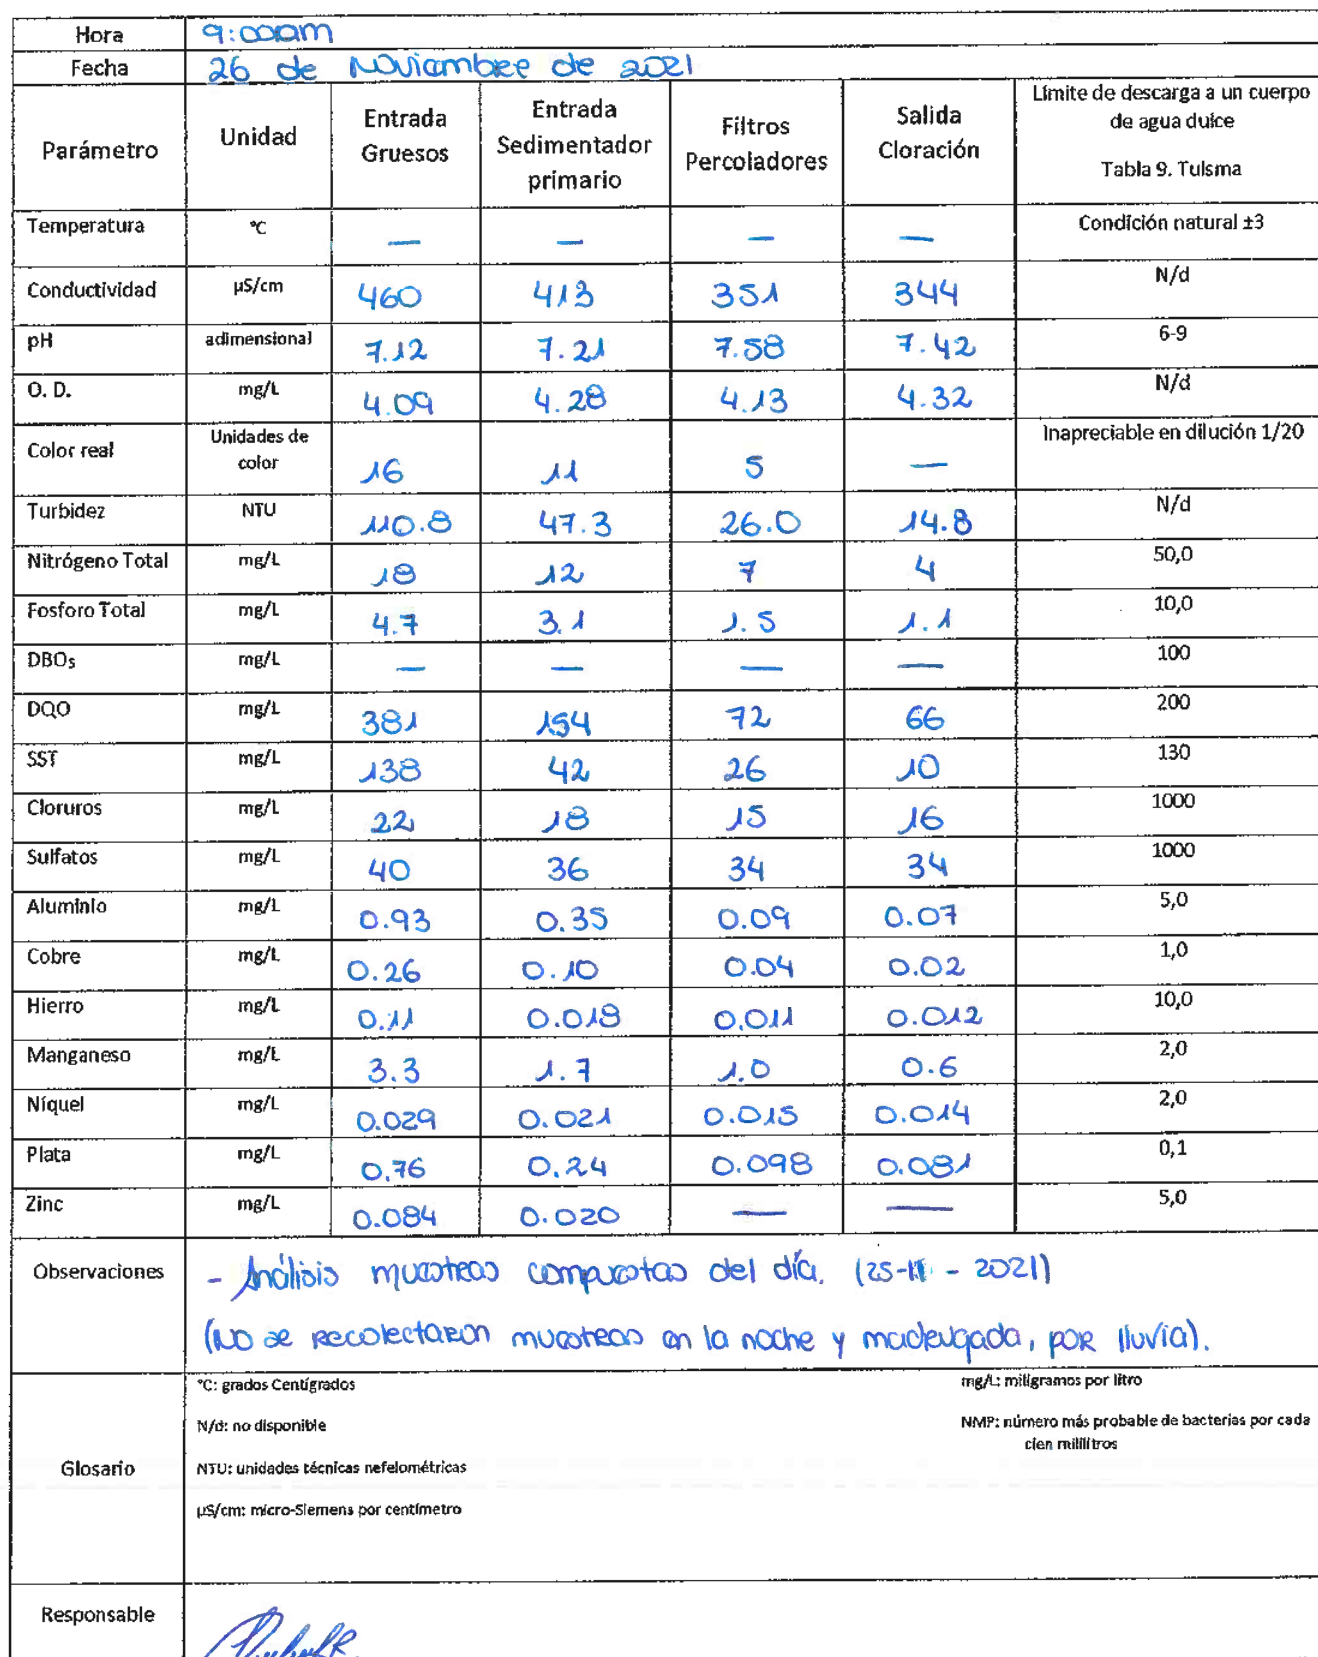 Hora 9:00am
Fecha 26 de Noviembre de 2021
Parámetro Unidad Entrada Gruesos Entrada Sedimentador primario Filtros Percoladores Salida Cloración Límite de descarga a un cuerpo de agua dulce Tabla 9. Tulsma
Temperatura °C — — — — Condición natural ±3
Conductividad µS/cm 460 413 351 344 N/d
pH adimensional 7.12 7.21 7.58 7.42 6-9
O. D. mg/L 4.09 4.28 4.13 4.32 N/d
Color real Unidades de color 16 11 5 — Inapreciable en dilución 1/20
Turbidez NTU 110.8 47.3 26.0 14.8 N/d
Nitrógeno Total mg/L 18 12 7 4 50,0
Fosforo Total mg/L 4.7 3.1 1.5 1.1 10,0
DBO₅ mg/L — — — — 100
DQO mg/L 381 154 72 66 200
SST mg/L 138 42 26 10 130
Cloruros mg/L 22 18 15 16 1000
Sulfatos mg/L 40 36 34 34 1000
Aluminio mg/L 0.93 0.35 0.09 0.07 5,0
Cobre mg/L 0.26 0.10 0.04 0.02 1,0
Hierro mg/L 0.11 0.018 0.011 0.012 10,0
Manganeso mg/L 3.3 1.7 1.0 0.6 2,0
Níquel mg/L 0.029 0.021 0.015 0.014 2,0
Plata mg/L 0.76 0.24 0.098 0.081 0,1
Zinc mg/L 0.084 0.020 — — 5,0
Observaciones - Análisis muestras compuestas del día. (25-11-2021)
(No se recolectaron muestras en la noche y madrugada, por lluvia).
Glosario
°C: grados Centígrados mg/L: miligramos por litro
N/d: no disponible NMP: número más probable de bacterias por cada cien mililitros
NTU: unidades técnicas nefelométricas
µS/cm: micro-Siemens por centímetro
Responsable